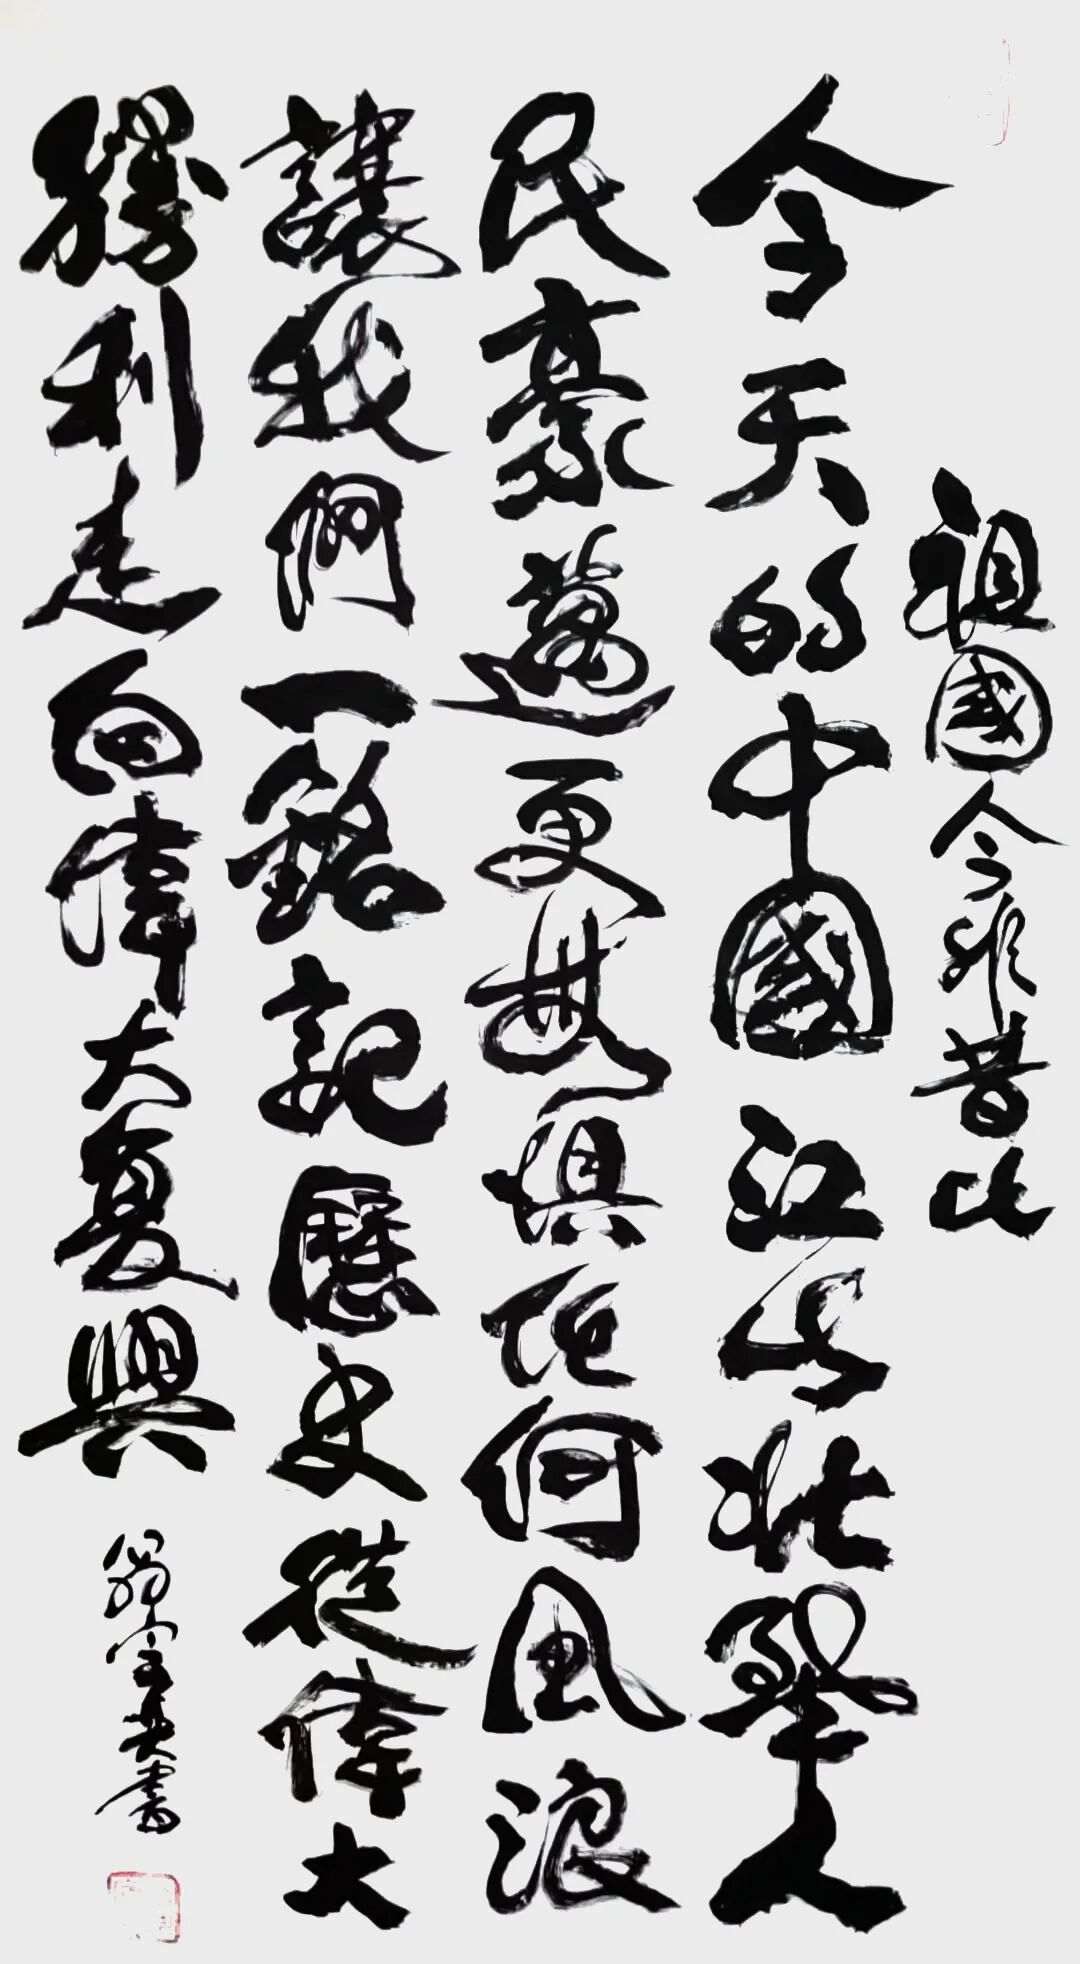 祖國今非昔比
今天的中國江山壯人
民豪邁更無懼任何風浪
讓我們一銘記歷史從偉大
勝利走向偉大复興
書